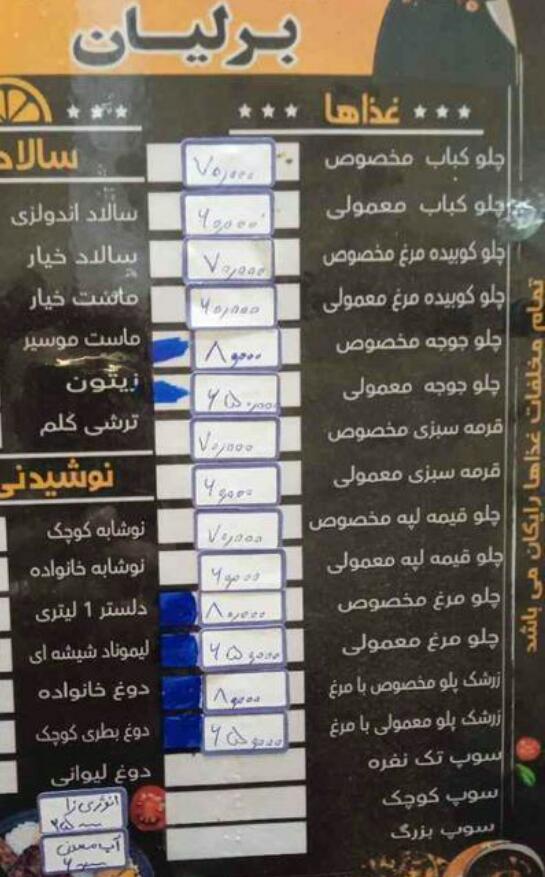 برلیان
*** غذاها ***
چلو کباب مخصوص ۷۰,۰۰۰
چلو کباب معمولی ۶۰,۰۰۰
چلو کوبیده مرغ مخصوص ۷۰,۰۰۰
چلو کوبیده مرغ معمولی ۶۰,۰۰۰
چلو جوجه مخصوص ۸۰,۰۰۰
چلو جوجه معمولی ۶۵۰,۰۰۰
قرمه سبزی مخصوص ۷۰,۰۰۰
قرمه سبزی معمولی ۶۰,۰۰۰
چلو قیمه لپه مخصوص ۷۰,۰۰۰
چلو قیمه لپه معمولی ۶۰,۰۰۰
چلو مرغ مخصوص ۸۰,۰۰۰
چلو مرغ معمولی ۶۵,۰۰۰
زرشک پلو مخصوص با مرغ ۸۰,۰۰۰
زرشک پلو معمولی با مرغ ۶۵,۰۰۰
سوپ تک نفره
سوپ کوچک
سوپ بزرگ
تمام مخلفات غذاها رایگان می باشد
سالاد
سالاد اندولزی
سالاد خیار
ماست خیار
ماست موسیر
زیتون
ترشی کلم
نوشیدنی
نوشابه کوچک
نوشابه خانواده
دلستر 1 لیتری
لیموناد شیشه ای
دوغ خانواده
دوغ بطری کوچک
دوغ لیوانی
انرژی زا
۲۵۰۰۰
آب معدنی
۶۰۰۰